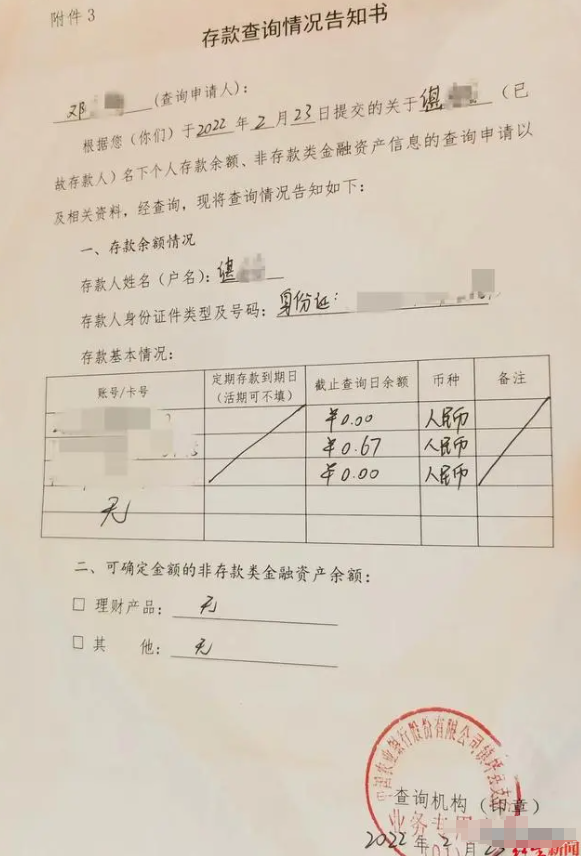 附件3
存款查询情况告知书
邓 (查询申请人):
根据您(你们)于2022年2月23日提交的关于谌 (已
故存款人)名下个人存款余额、非存款类金融资产信息的查询申请以
及相关资料,经查询,现将查询情况告知如下:
一、存款余额情况
存款人姓名(户名):谌
存款人身份证件类型及号码:身份证:
存款基本情况:
账号/卡号 定期存款到期日(活期可不填) 截止查询日余额 币种 备注
¥0.00 人民币
¥0.67 人民币
¥0.00 人民币
无
二、可确定金额的非存款类金融资产余额:
□ 理财产品: 无
□ 其 他: 无
中国农业银行股份有限公司镇坪县支行
查询机构(印章)
业务专用
2022年2月
新闻